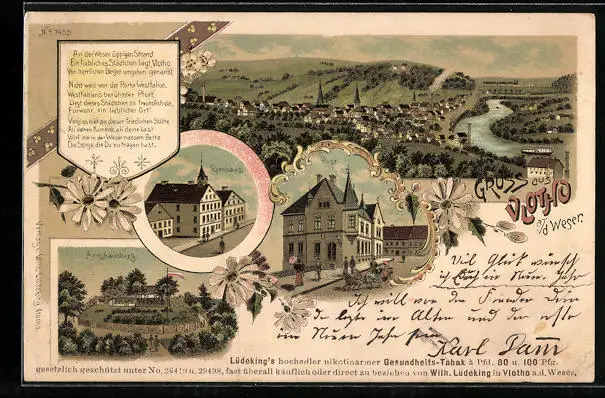 No 7450
An der Weser üppigen Strand
Ein liebliches Städtchen liegt, Vlotho
Von herrlichen Bergen umgeben, genannt.
Nicht weit von der Porta Westfalica,
Westfalen's berühmter Pfort,
Liegt dieses Städtchen so freundlich da,
Fürwahr, ein lieblicher Ort!
Vergiss hier an dieser friedlichen Stätte
All deinen Kummer, all deine Last.
Wirf sie in der Weser nassem Bette
Die Sorge, die Du zu tragen hast.
Kornhaus
Post
GRUSS AUS
VLOTHO
a/d Weser.
Amtshausberg
Viel Glück wünsch
ich Euch im Neuen Jahr
Ich will von
der letzte im Alten und der erste
im Neuen Jahr sein
Karl
Lüdeking's hochedler nikotinarmer Gesundheits-Tabak à Pfd. 80 u. 100 Pfg.
gesetzlich geschützt unter No. 26419 u. 29498, fast überall käuflich oder direct zu beziehen von Wilh. Lüdeking in Vlotho a.d. Weser.